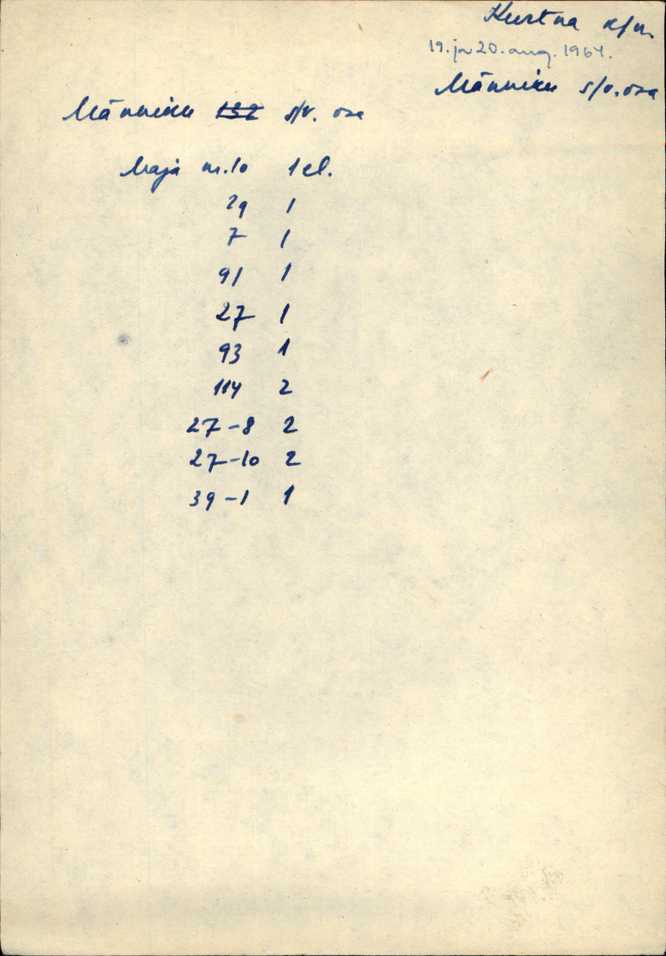 Kurtna k/n.
19. ja 20. aug. 1964.
Männiku s/v. osa
Männiku 132 s/v. osa
Maja nr. 10 1 el.
29 1
7 1
91 1
27 1
93 1
114 2
27-8 2
27-10 2
39-1 1